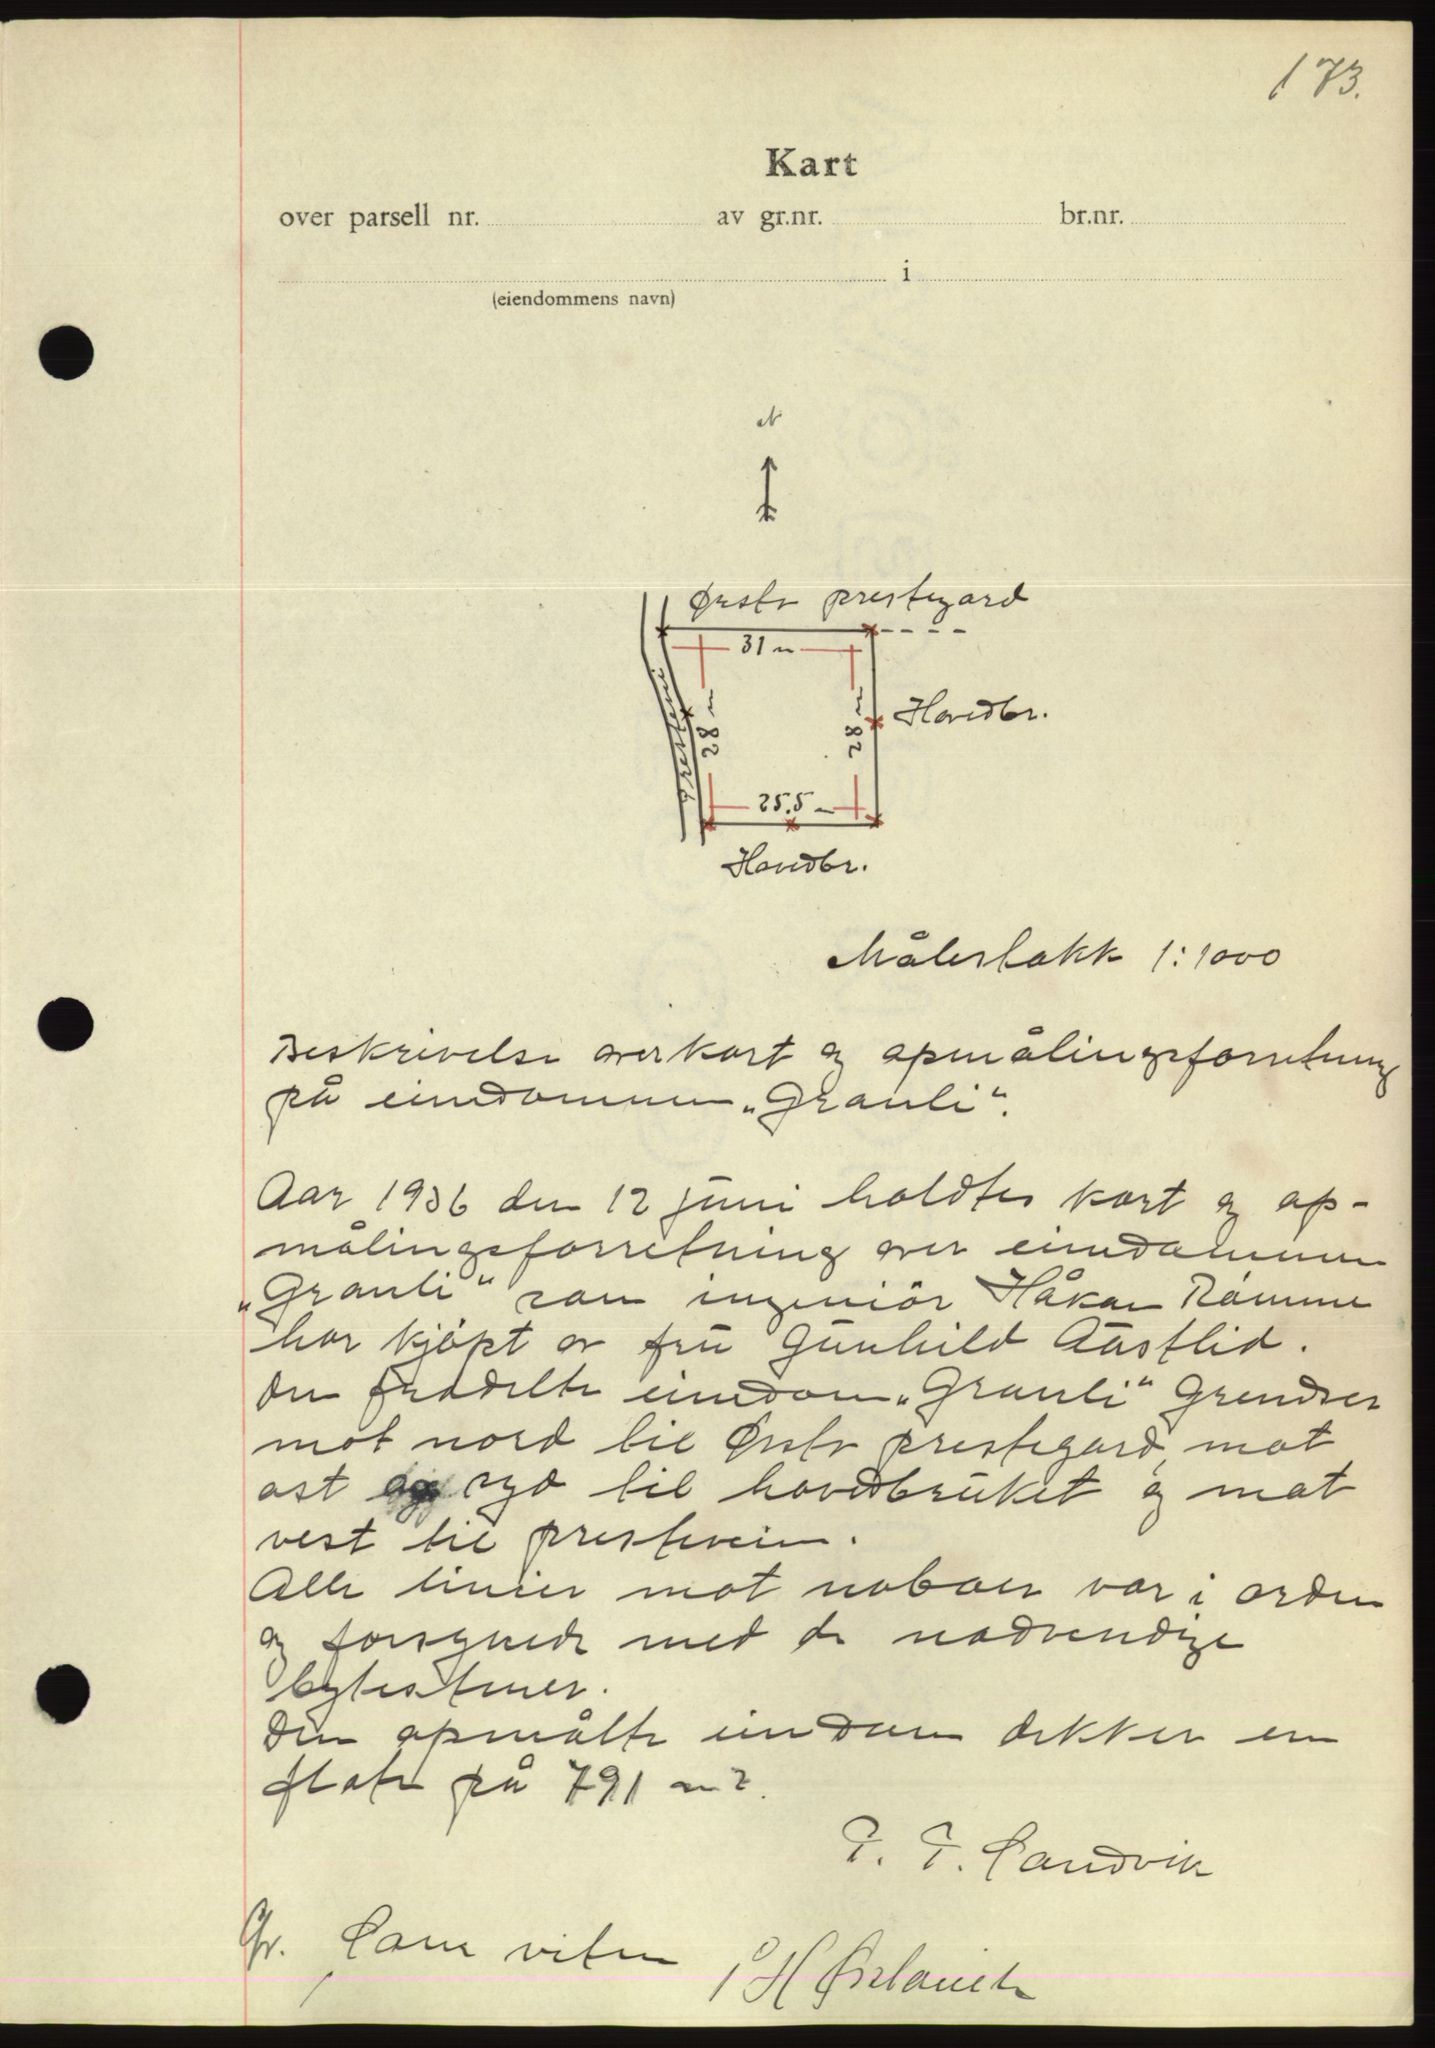 173.
Kart
over parsell nr. av gr.nr. br.nr.
i
(eiendommens navn)
N
Ørsta prestegard
31 m
Hovedbr.
28 m
28 m
Prestevei
25.5 m
Hovedbr.
Målestokk 1:1000
Beskrivelse over kart og opmålingsforretning
på eiendommen „Granli“.
Aar 1936 den 12 juni holdtes kart og op-
målingsforretning over eiendommen
„Granli“ som ingeniør Håkon Rømme
har kjøpt av fru Gunhild Aastlid.
Den fradelte eiendom „Granli“ Grendser
mot nord til Ørsta prestegard, mot
øst og syd til hovedbruket og mot
vest til presteveien.
Alle linier mot naboer var i orden
og forsynede med de nødvendige
bytestener.
Den opmålte eiendom dekker en
flate på 791 m2.
T. T. Sandvik
Som vitne